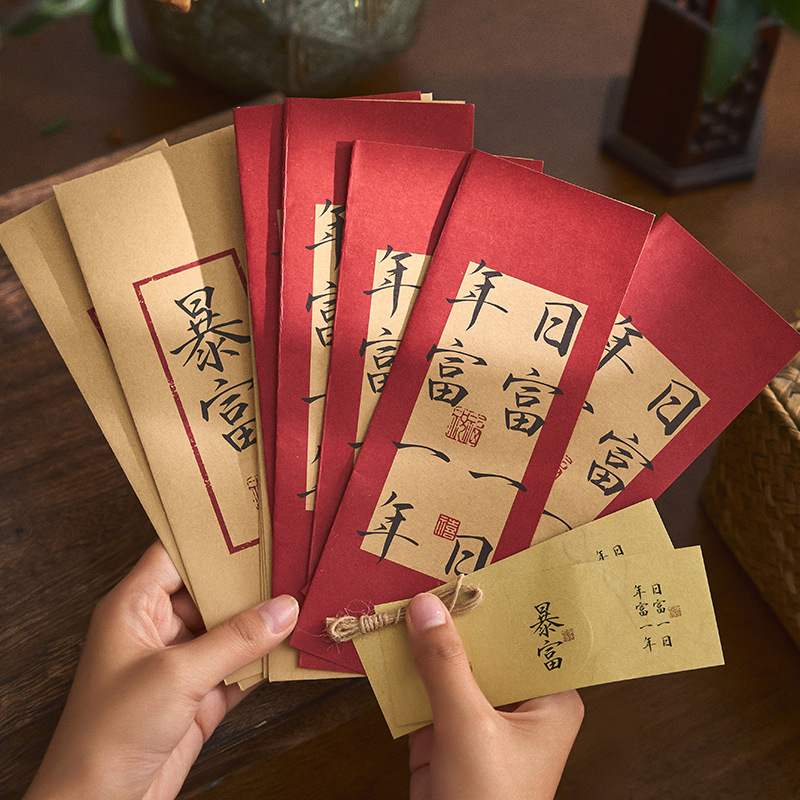 暴富
年富一年
年富一
日富一日
年富一年
日富一
年
日
年
暴富
日富一日
年富一年